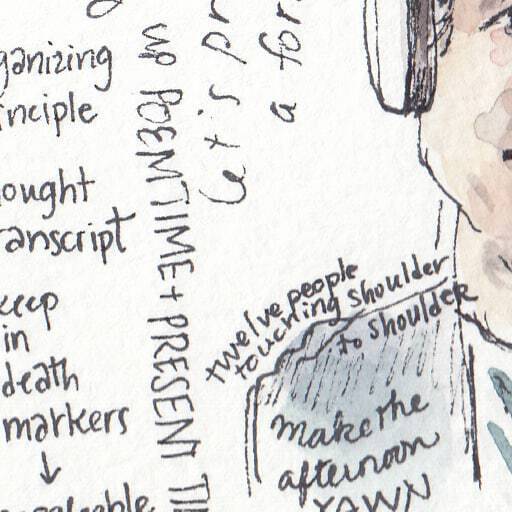 ganizing
inciple
ought
anscript
keep
in
death
markers
↓
up POEMTIME + PRESENT TI
let's pr
a for
twelve people
touching shoulder
to shoulder
make the
afternoon
YAWN